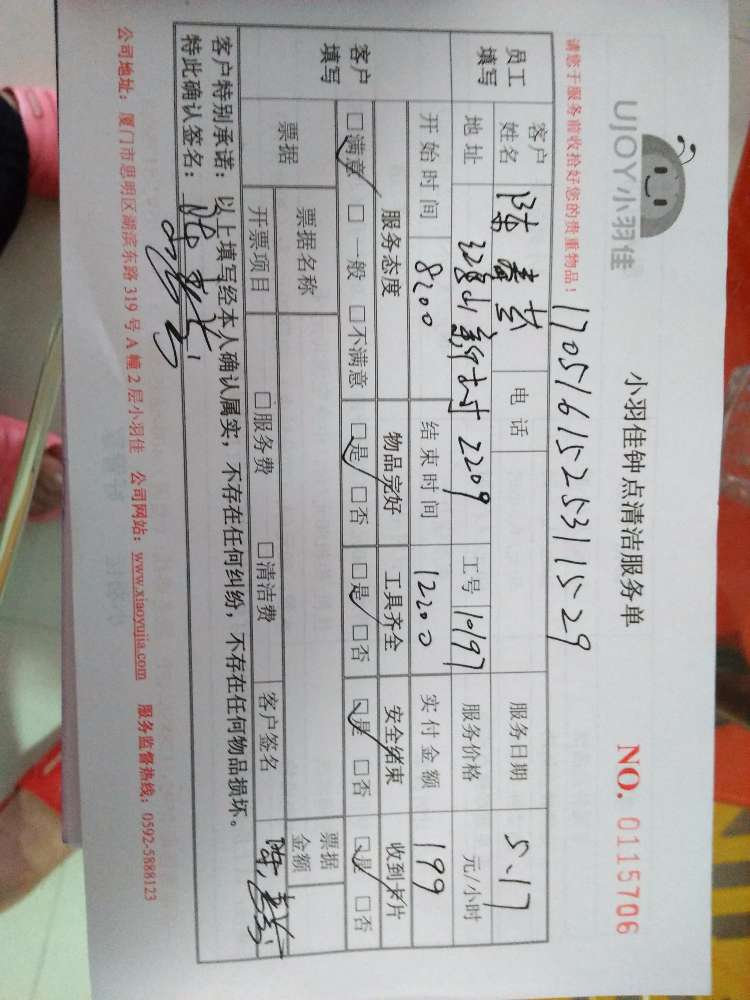 UJOY小羽佳
小羽佳钟点清洁服务单
NO. 0115706
请您于服务前收拾好您的贵重物品！
1705161525311529
员工填写
客户姓名 陈春芸 电话 服务日期 5.17
地址 新村2209 工号 10197 服务价格 元/小时
开始时间 8200 结束时间 12200 实付金额 199
客户填写
服务态度 物品完好 工具齐全 安全结束 收到卡片
□满意 □一般 □不满意 □是 □否 □是 □否 □是 □否 □是 □否
票据 票据名称 票据金额
开票项目 □服务费 □清洁费 客户签名
客户特别承诺：以上填写经本人确认属实，不存在任何纠纷，不存在任何物品损坏。
特此确认签名：
公司地址：厦门市思明区湖滨东路319号A幢2层小羽佳 公司网站：www.xiaoyujia.com 服务监督热线：0592-5888123